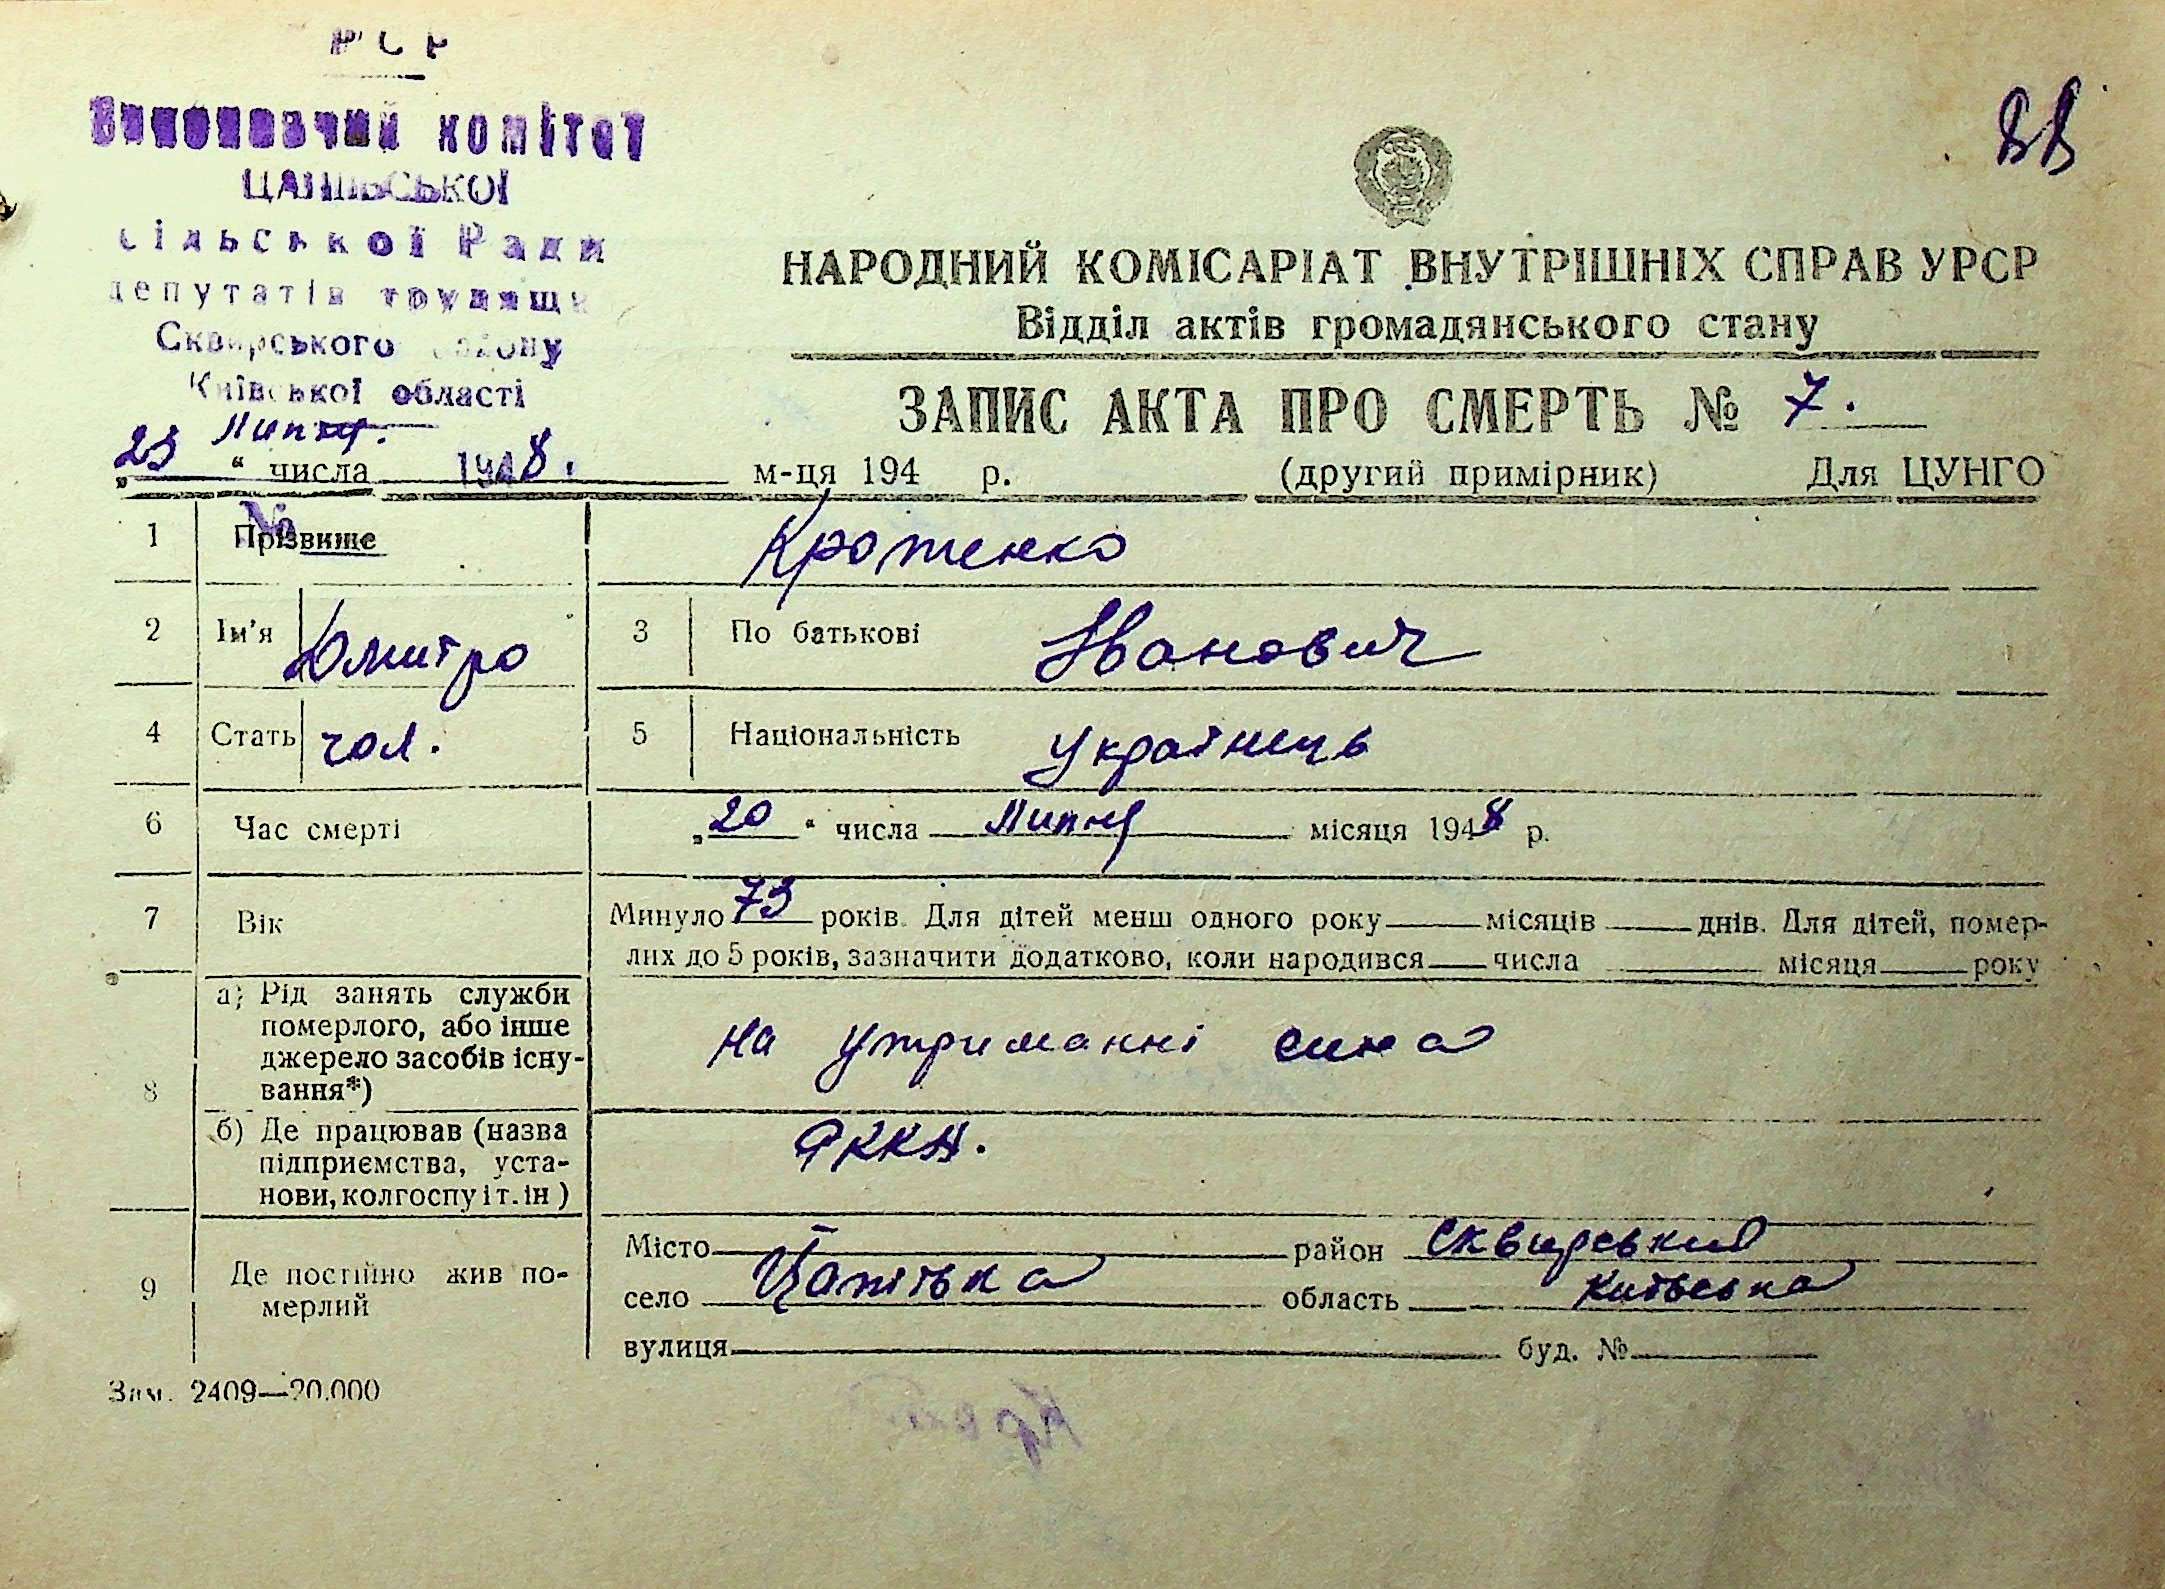 РСР
Виконавчий комітет
ЦАПІЇВСЬКОЇ
сільської Ради
депутатів трудящ
Сквирського району
Київської області
НАРОДНИЙ КОМІСАРІАТ ВНУТРІШНІХ СПРАВ УРСР
Відділ актів громадянського стану
ЗАПИС АКТА ПРО СМЕРТЬ № 7.
Липня.
„23“ числа 1948. м-ця 194 р. (другий примірник) Для ЦУНГО
№
1 Прізвище Кротенко
2 Ім’я Дмитро 3 По батькові Іванович
4 Стать чол. 5 Національність Українець
6 Час смерті „20“ числа Липня місяця 1948 р.
7 Вік Минуло 73 років. Для дітей менш одного року місяців днів. Для дітей, помер-
лих до 5 років, зазначити додатково, коли народився числа місяця року
8 а) Рід занять служби
померлого, або інше
джерело засобів існу-
вання*) на утриманні сина
б) Де працював (назва
підприємства, уста-
нови, колгоспу і т. ін)
9 Де постійно жив по-
мерлий
Місто район Сквирський
село область Київська
вулиця буд. №
Зам. 2409—20.000